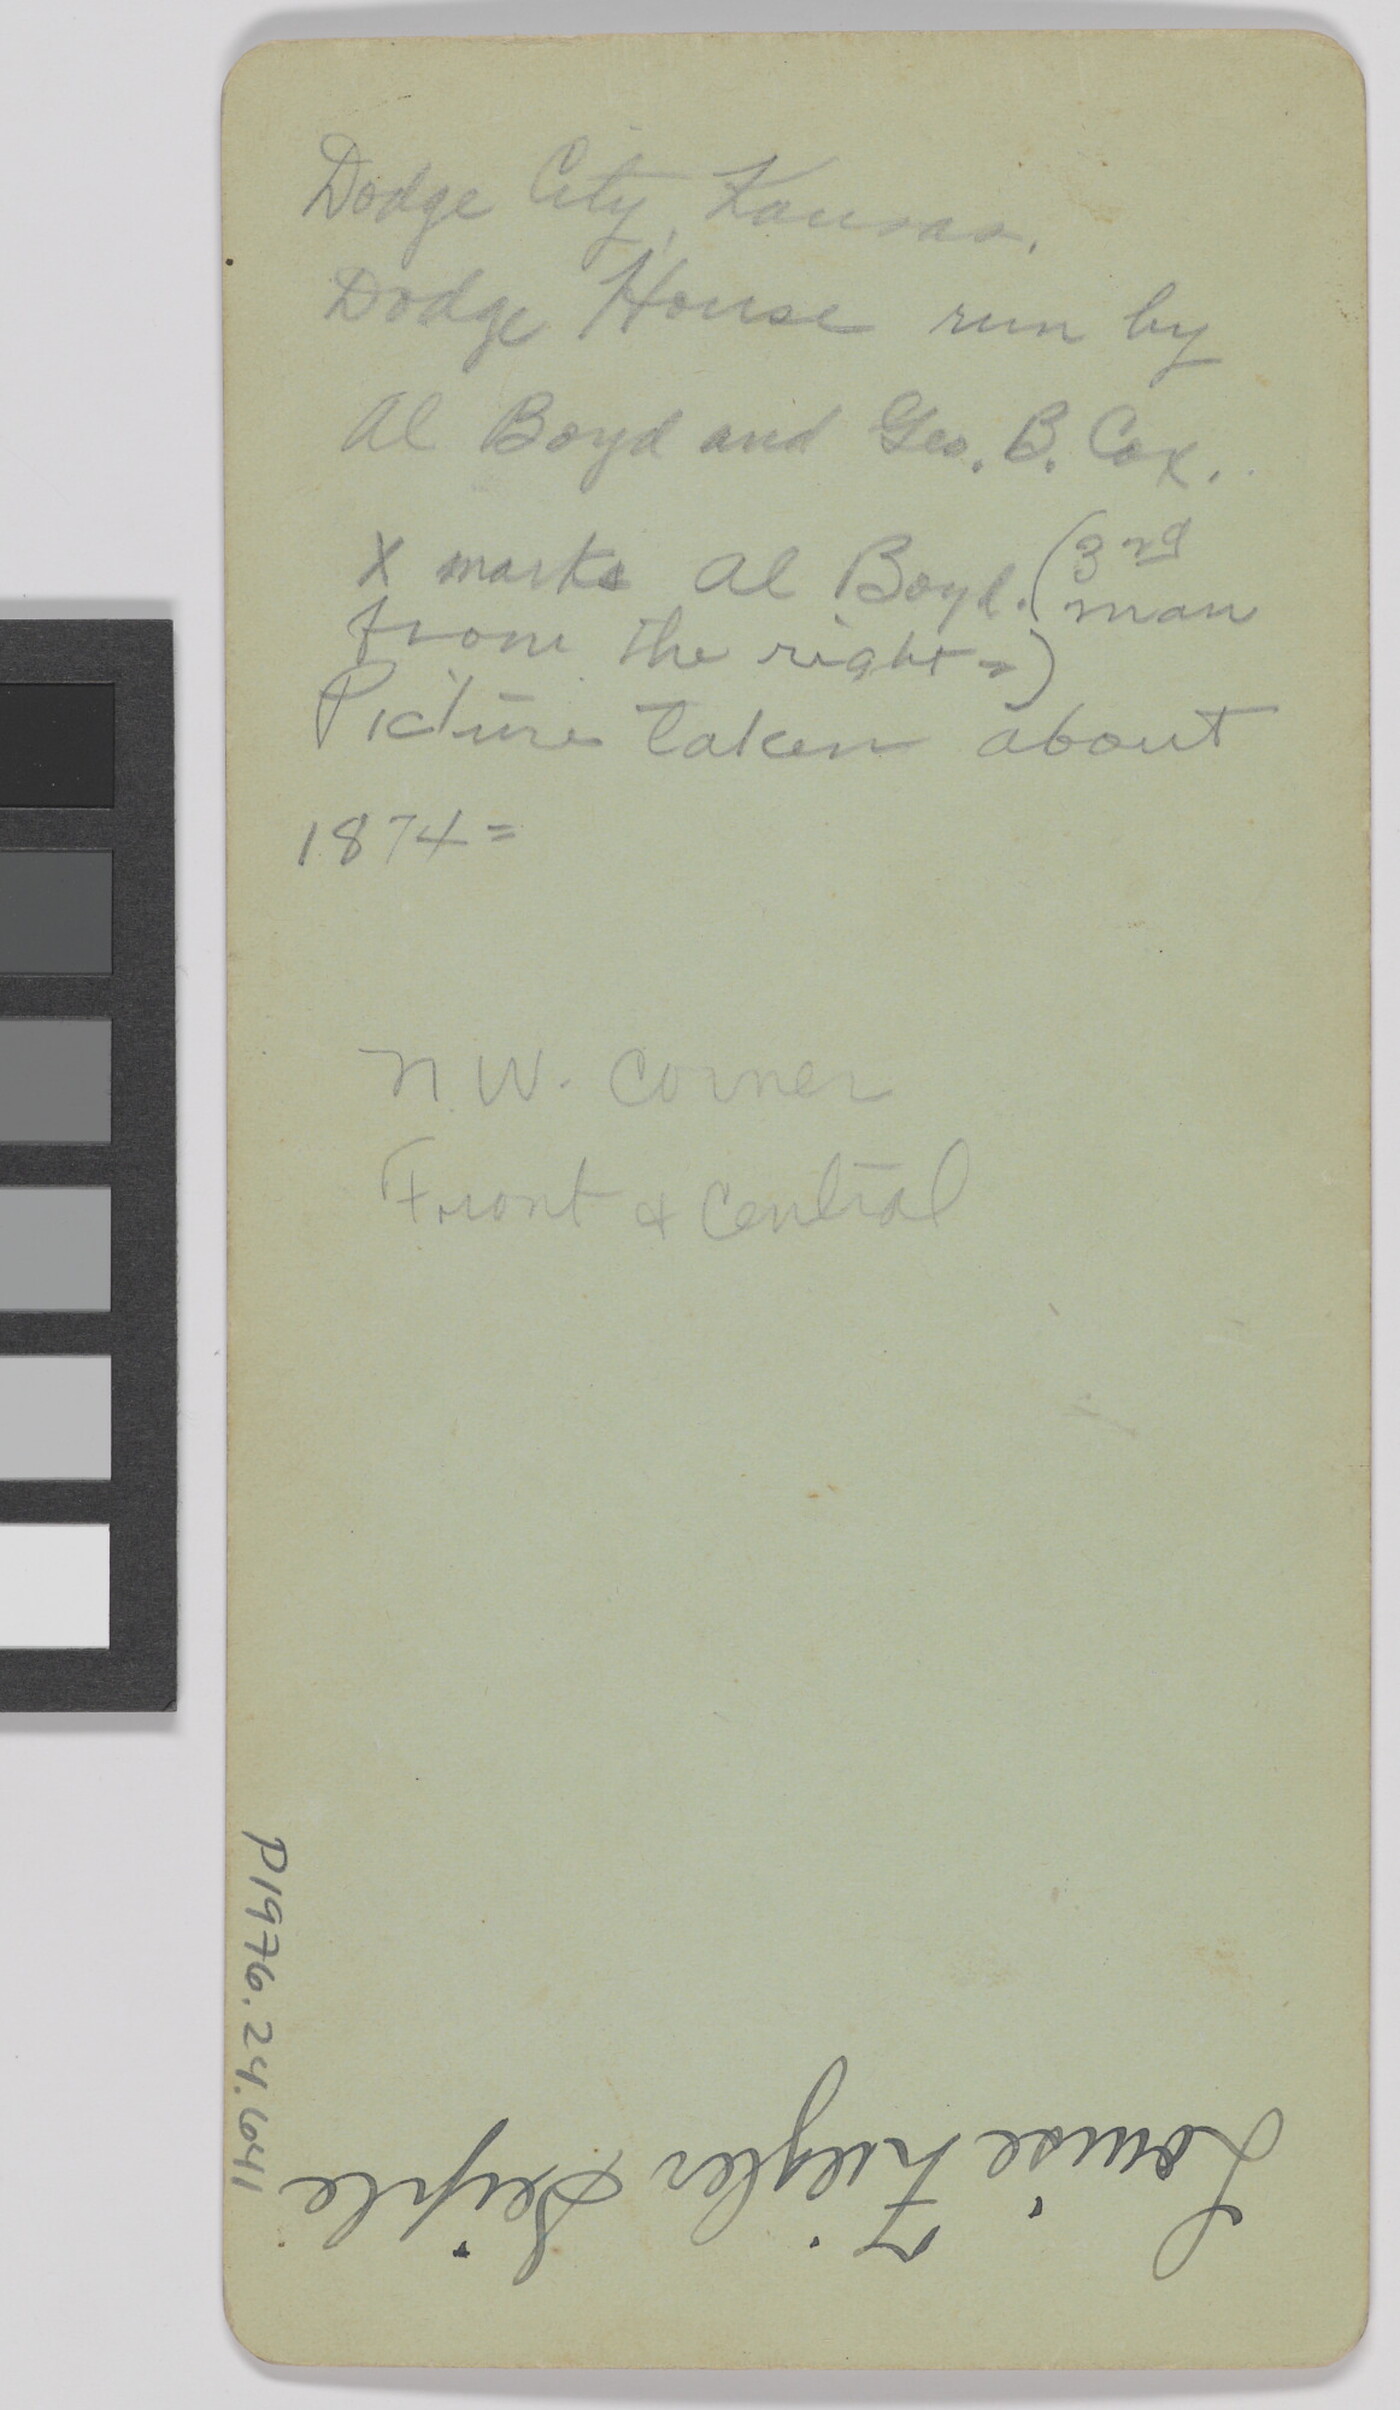 Dodge City, Kansas.
Dodge House run by
Al Boyd and Geo. B. Cox.
X marks Al Boyd. (3rd man
from the right=)
Picture taken about
1874=
N.W. Corner
Front & Central
P1976.24.641
Louise Seiple